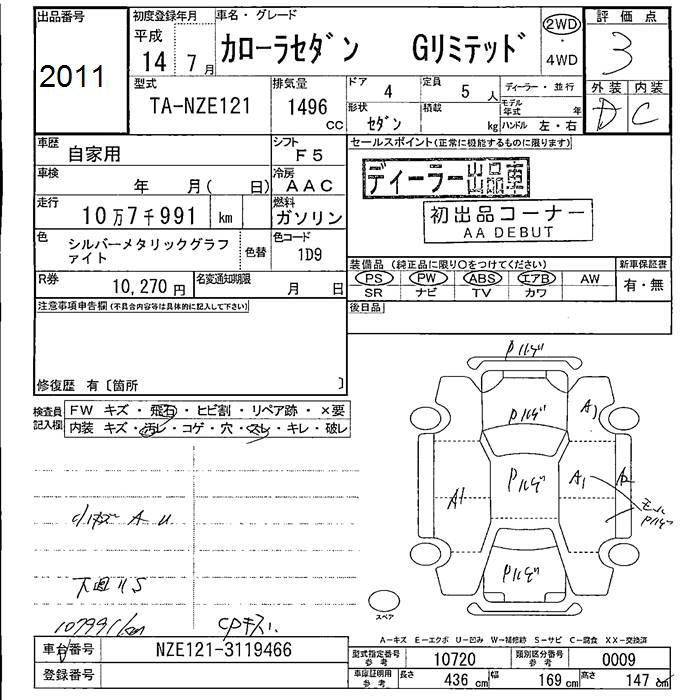 出品番号 2011
初度登録年月 平成 14年 7月
車名・グレード カローラセダン Gリミテッド
2WD・4WD
評価点 3
外装 内装
D C
型式 TA-NZE121
排気量 1496 CC
ドア 4 定員 5 人
形状 セダン 積載 kg
ディーラー・並行
モデル年式 年
ハンドル 左・右
車歴 自家用
シフト F5
車検 年 月( 日)
冷房 AAC
走行 10万7千991 km
燃料 ガソリン
色 シルバーメタリックグラファイト 色替
色コード 1D9
R券 10,270円
名変通知期限 月 日
セールスポイント(正常に機能するものに限ります)
ディーラー出品車
初出品コーナー
AA DEBUT
装備品 (純正品に限り○をつけてください) 新車保証書
PS PW ABS エアB AW 有・無
SR ナビ TV カワ
後日品
注意事項申告欄(不具合内容等は具体的に記入して下さい)
修復歴 有〔箇所 〕
検査員記入欄
FW キズ・飛石・ヒビ割・リペア跡・×要
内装 キズ・汚レ・コゲ・穴・スレ・キレ・破レ
Pハゲ
Pハゲ
A1
Pハゲ
A1
A1
モール
Pハゲ
Pハゲ
A U
下廻りS
107991km
CPキズ
スペア
A-キズ E-エクボ U-凹み W-補修跡 S-サビ C-腐食 XX-交換済
車台番号 NZE121-3119466
登録番号
型式指定番号 参考 10720 類別区分番号 参考 0009
車庫証明用 参考 長さ 436 cm 幅 169 cm 高さ 147 cm